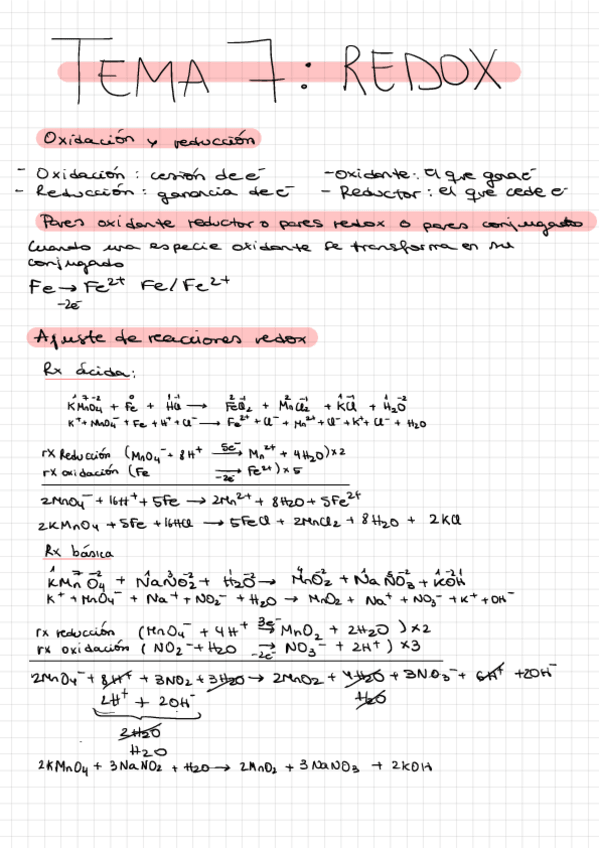 TEMA 7: REDOX
Oxidación y reducción
- Oxidación: cesión de e⁻ - Oxidante: el que gana e⁻
- Reducción: ganancia de e⁻ - Reductor: el que cede e⁻
Pares oxidante reductor o pares redox o pares conjugado
Cuando una especie oxidante se transforma en su
conjugado
Fe → Fe²⁺ Fe/Fe²⁺
-2e⁻
Ajuste de reacciones redox
Rx ácida:
1 7 -2 0 1 -1 2 -1 2 -1 1 -1 1 -2
KMnO₄ + Fe + HCl → FeCl₂ + MnCl₂ + KCl + H₂O
K⁺ + MnO₄⁻ + Fe + H⁺ + Cl⁻ → Fe²⁺ + Cl⁻ + Mn²⁺ + Cl⁻ + K⁺ + Cl⁻ + H₂O
rx Reducción (MnO₄⁻ + 8H⁺ 5e⁻→ Mn²⁺ + 4H₂O) x2
rx oxidación (Fe →-2e⁻ Fe²⁺) x5
2MnO₄⁻ + 16H⁺ + 5Fe → 2Mn²⁺ + 8H₂O + 5Fe²⁺
2KMnO₄ + 5Fe + 16HCl → 5FeCl + 2MnCl₂ + 8H₂O + 2KCl
Rx básica
1 7 -2 1 3 -2 1 -2 4 -2 1 5 -2 1 -2 1
KMnO₄ + NaNO₂ + H₂O → MnO₂ + NaNO₃ + KOH
K⁺ + MnO₄⁻ + Na⁺ + NO₂⁻ + H₂O → MnO₂ + Na⁺ + NO₃⁻ + K⁺ + OH⁻
rx reducción (MnO₄⁻ + 4H⁺ 3e⁻→ MnO₂ + 2H₂O) x2
rx oxidación (NO₂⁻ + H₂O →-2e⁻ NO₃⁻ + 2H⁺) x3
2MnO₄⁻ + 8H⁺ + 3NO₂ + 3H₂O → 2MnO₂ + 4H₂O + 3NO₃⁻ + 6H⁺ + 2OH⁻
2H⁺ + 2OH⁻ H₂O
2H₂O
H₂O
2KMnO₄ + 3NaNO₂ + H₂O → 2MnO₂ + 3NaNO₃ + 2KOH